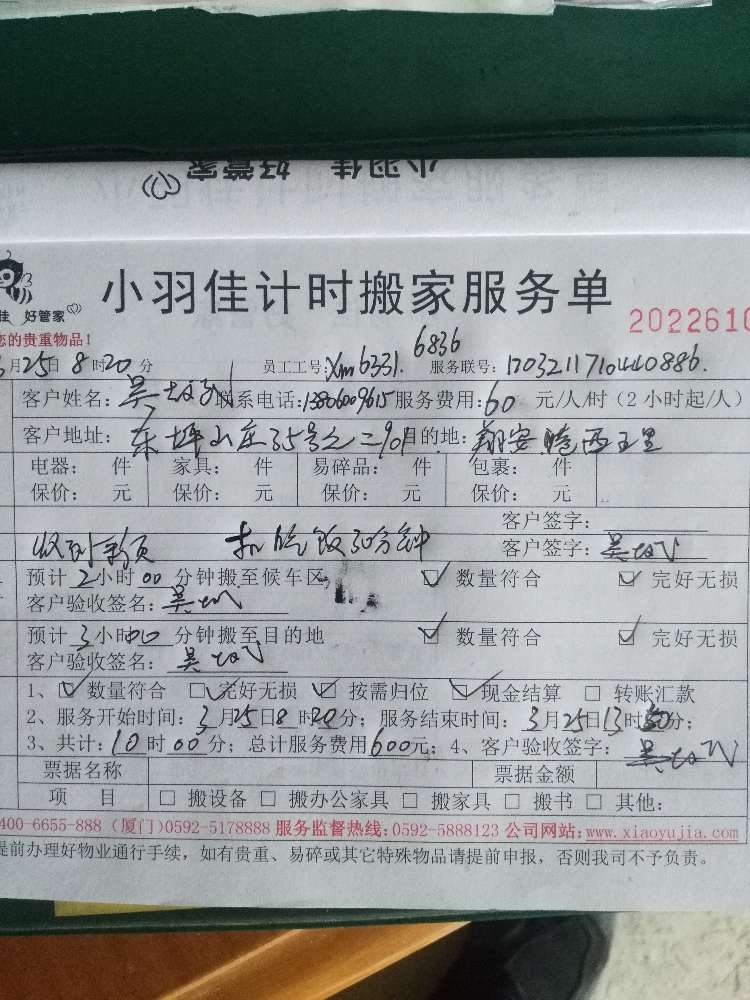 小羽佳 好管家
佳 好管家
小羽佳计时搬家服务单
2022610
您的贵重物品！
3月25日8时20分 员工工号：Xm6331. 6836 服务联号：1203211710440886.
客户姓名：吴 联系电话：13806009615 服务费用：60 元/人/时（2小时起/人）
客户地址：东坪山庄35号之二901 目的地：翔安 西五里
电器： 件 家具： 件 易碎品： 件 包裹： 件
保价： 元 保价： 元 保价： 元 保价： 元
客户签字：
收到款项 扣吃饭30分钟 客户签字：吴
预计2小时00分钟搬至候车区 ☑ 数量符合 ☑ 完好无损
客户验收签名：吴
预计3小时00分钟搬至目的地 ☑ 数量符合 ☑ 完好无损
客户验收签名：吴
1、☑ 数量符合 ☑ 完好无损 ☑ 按需归位 ☑ 现金结算 □ 转账汇款
2、服务开始时间：3月25日8时20分；服务结束时间：3月25日13时50分；
3、共计：10时00分；总计服务费用600元；4、客户验收签字：吴
票据名称 票据金额
项 目 □ 搬设备 □ 搬办公家具 □ 搬家具 □ 搬书 □ 其他：
400-6655-888（厦门）0592-5178888 服务监督热线：0592-5888123 公司网站：www.xiaoyujia.com
提前办理好物业通行手续，如有贵重、易碎或其它特殊物品请提前申报，否则我司不予负责。